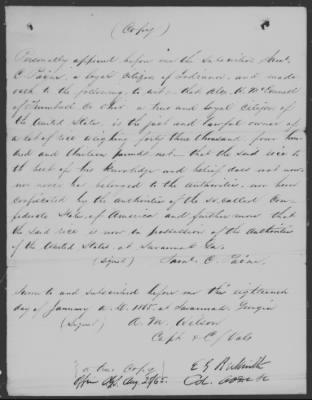 (Copy)
Personally appeared before me the subscriber Saml.
C. Paine, a loyal citizen of Indiana, and made
oath to the following, to wit – that Alex. W. McConnell
of Trumbull Co Ohio a true and loyal citizen of
the United States, is the just and lawful owner of
a lot of rice weighing forty three thousand, four hun
dred and thirteen pounds net – that the said rice to
the best of his knowledge and belief does not now
nor never has belonged to the authorities, nor been
confiscated by the authorities of the so-called Con-
federate States of America and further more that
the said rice is now in possession of the authorities
of the United States at Savannah Ga.
(Signed) Saml. C. Paine.
Sworn to and subscribed before me this eighteenth
day of January A. D. 1865. at Savannah, Georgia
(Signed) A. M. Wilson
Capt &
(a true Copy)
Aug 2/65.